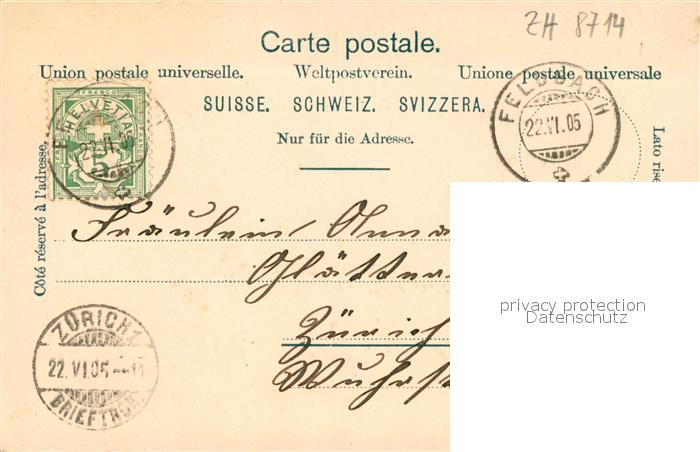 ZH 8714
Carte postale.
Union postale universelle. Weltpostverein. Unione postale universale
SUISSE. SCHWEIZ. SVIZZERA.
Nur für die Adresse.
Côté réservé à l'adresse.
Lato rise
FRANCO
HELVETIA
5
22.VI.05
FELDBACH
22.VI.05
Fräulein Anna
Glätter
Zürich
Wuhrst
ZÜRICH
22.VI.05--11
BRIEFTRG.
privacy protection
Datenschutz